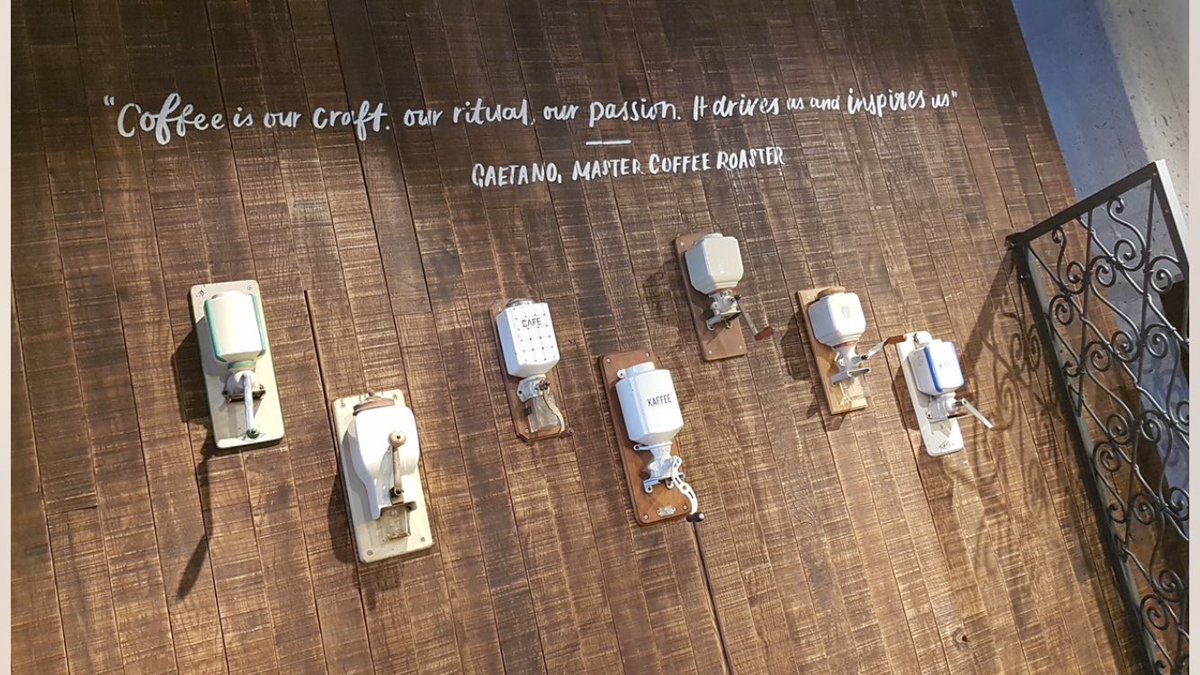 "Coffee is our craft. our ritual, our passion. It drives us and inspires us"
GAETANO, MASTER COFFEE ROASTER
CAFE
KAFFEE